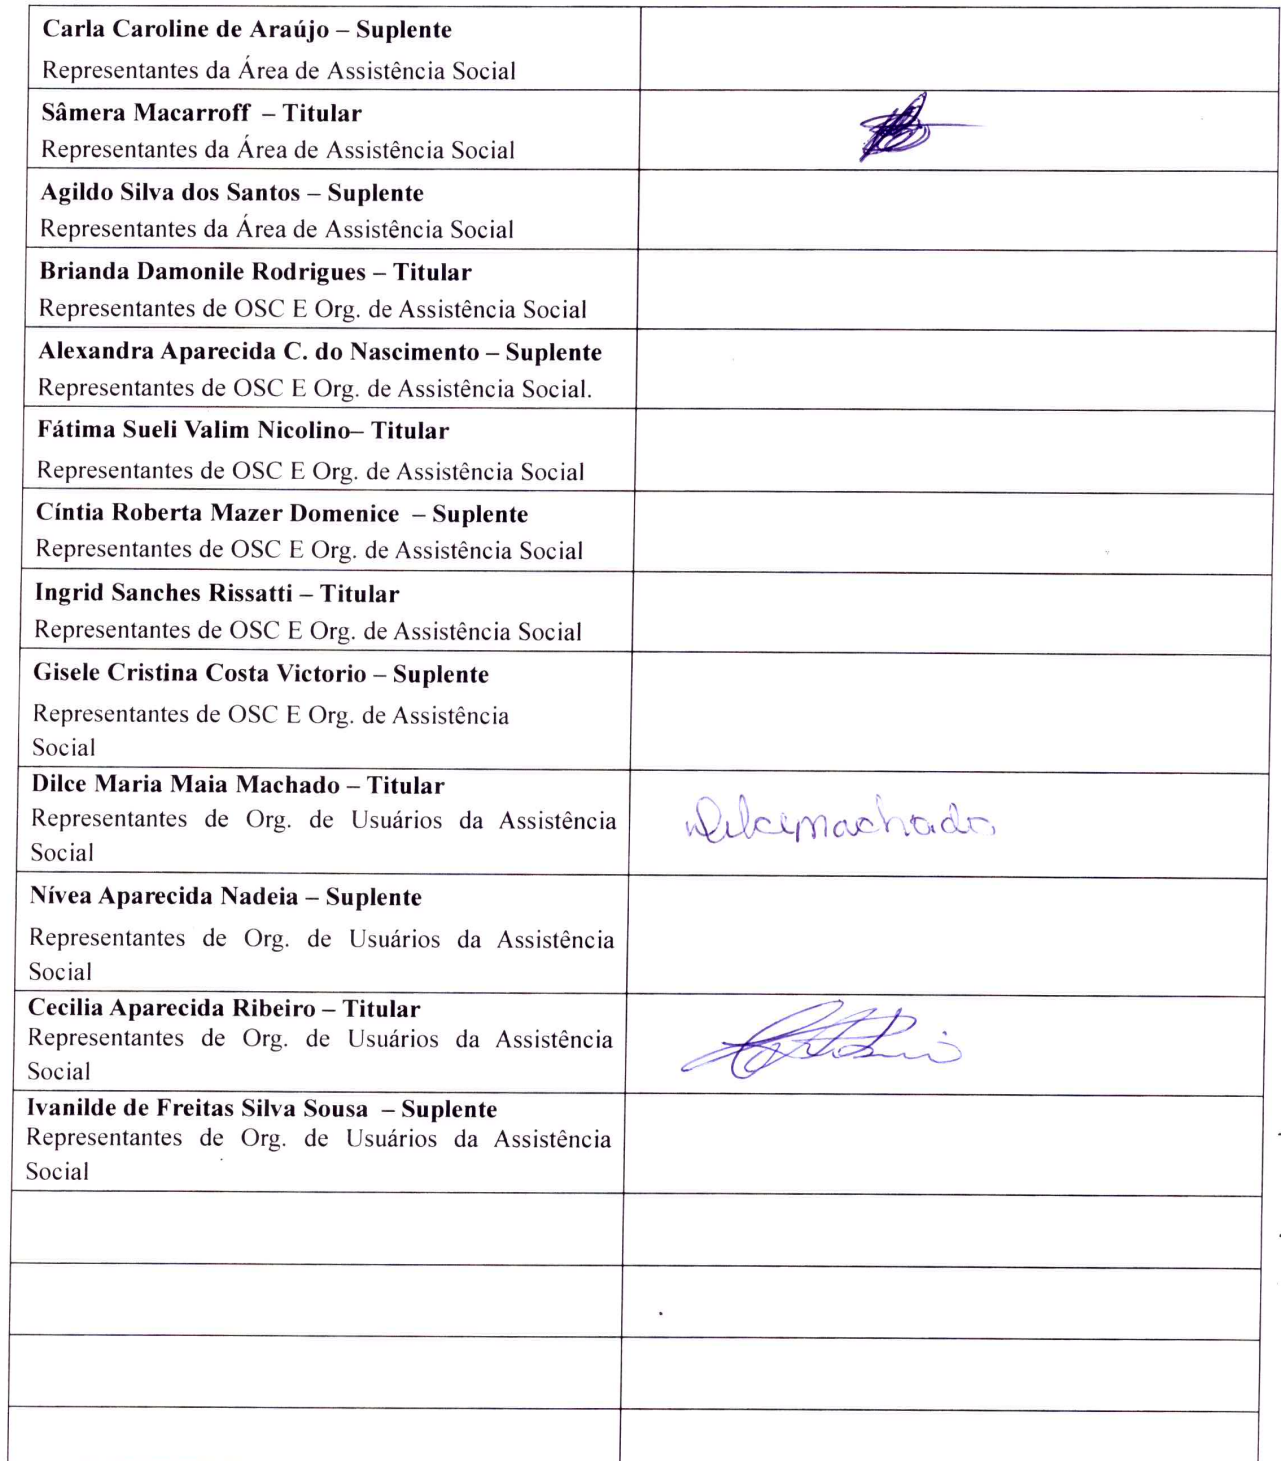 Carla Caroline de Araújo – Suplente
Representantes da Área de Assistência Social
Sâmera Macarroff – Titular
Representantes da Área de Assistência Social
Agildo Silva dos Santos – Suplente
Representantes da Área de Assistência Social
Brianda Damonile Rodrigues – Titular
Representantes de OSC E Org. de Assistência Social
Alexandra Aparecida C. do Nascimento – Suplente
Representantes de OSC E Org. de Assistência Social.
Fátima Sueli Valim Nicolino– Titular
Representantes de OSC E Org. de Assistência Social
Cíntia Roberta Mazer Domenice – Suplente
Representantes de OSC E Org. de Assistência Social
Ingrid Sanches Rissatti – Titular
Representantes de OSC E Org. de Assistência Social
Gisele Cristina Costa Victorio – Suplente
Representantes de OSC E Org. de Assistência
Social
Dilce Maria Maia Machado – Titular
Representantes de Org. de Usuários da Assistência
Social
Dilcemachado
Nívea Aparecida Nadeia – Suplente
Representantes de Org. de Usuários da Assistência
Social
Cecilia Aparecida Ribeiro – Titular
Representantes de Org. de Usuários da Assistência
Social
Ivanilde de Freitas Silva Sousa – Suplente
Representantes de Org. de Usuários da Assistência
Social